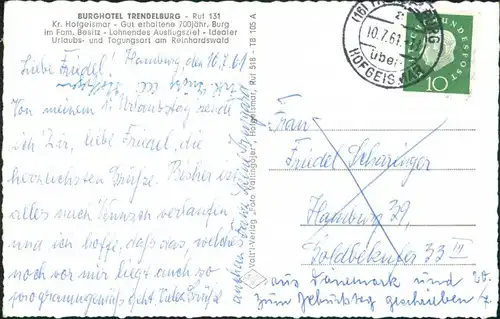 BURGHOTEL TRENDELBURG - Ruf 131
Kr. Hofgeismar - Gut erhaltene 700jähr. Burg
im Fam. Besitz - Lohnendes Ausflugsziel - Idealer
Urlaubs- und Tagungsort am Reinhardswald
Liebe Friedel! Hamburg, den 10.7.61
Von meinem 1. Urlaubstag sende
ich Dir, liebe Friedel, die
herzlichsten Grüße. Bisher ist
alles nach Wunsch verlaufen
und ich hoffe, daß das, welches
noch vor mir liegt auch so
programmgemäß geht. Viele Grüße
Hofgeismar, Ruf 518 - TB 105 A
10.7.61
über
HOFGEISMAR
DEUTSCHE BUNDESPOST
10
Frau
Friedel Scharinger
Hamburg 39,
Goldbekufer 33 III
aus Dänemark und 20.
zum Geburtstag geschrieben 7.